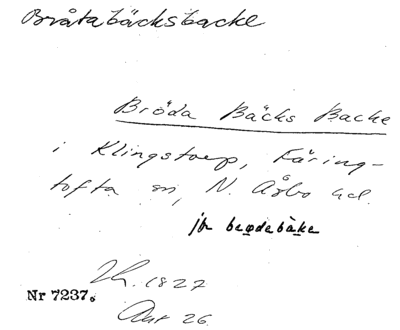 Bråtabäcksbacke
Bröda Bäcks Backe
i Klingstorp, Färing-
tofta sn, N. Åsbo hd.
jfr brødebäke
1827
Nr 7237.
Akt 26